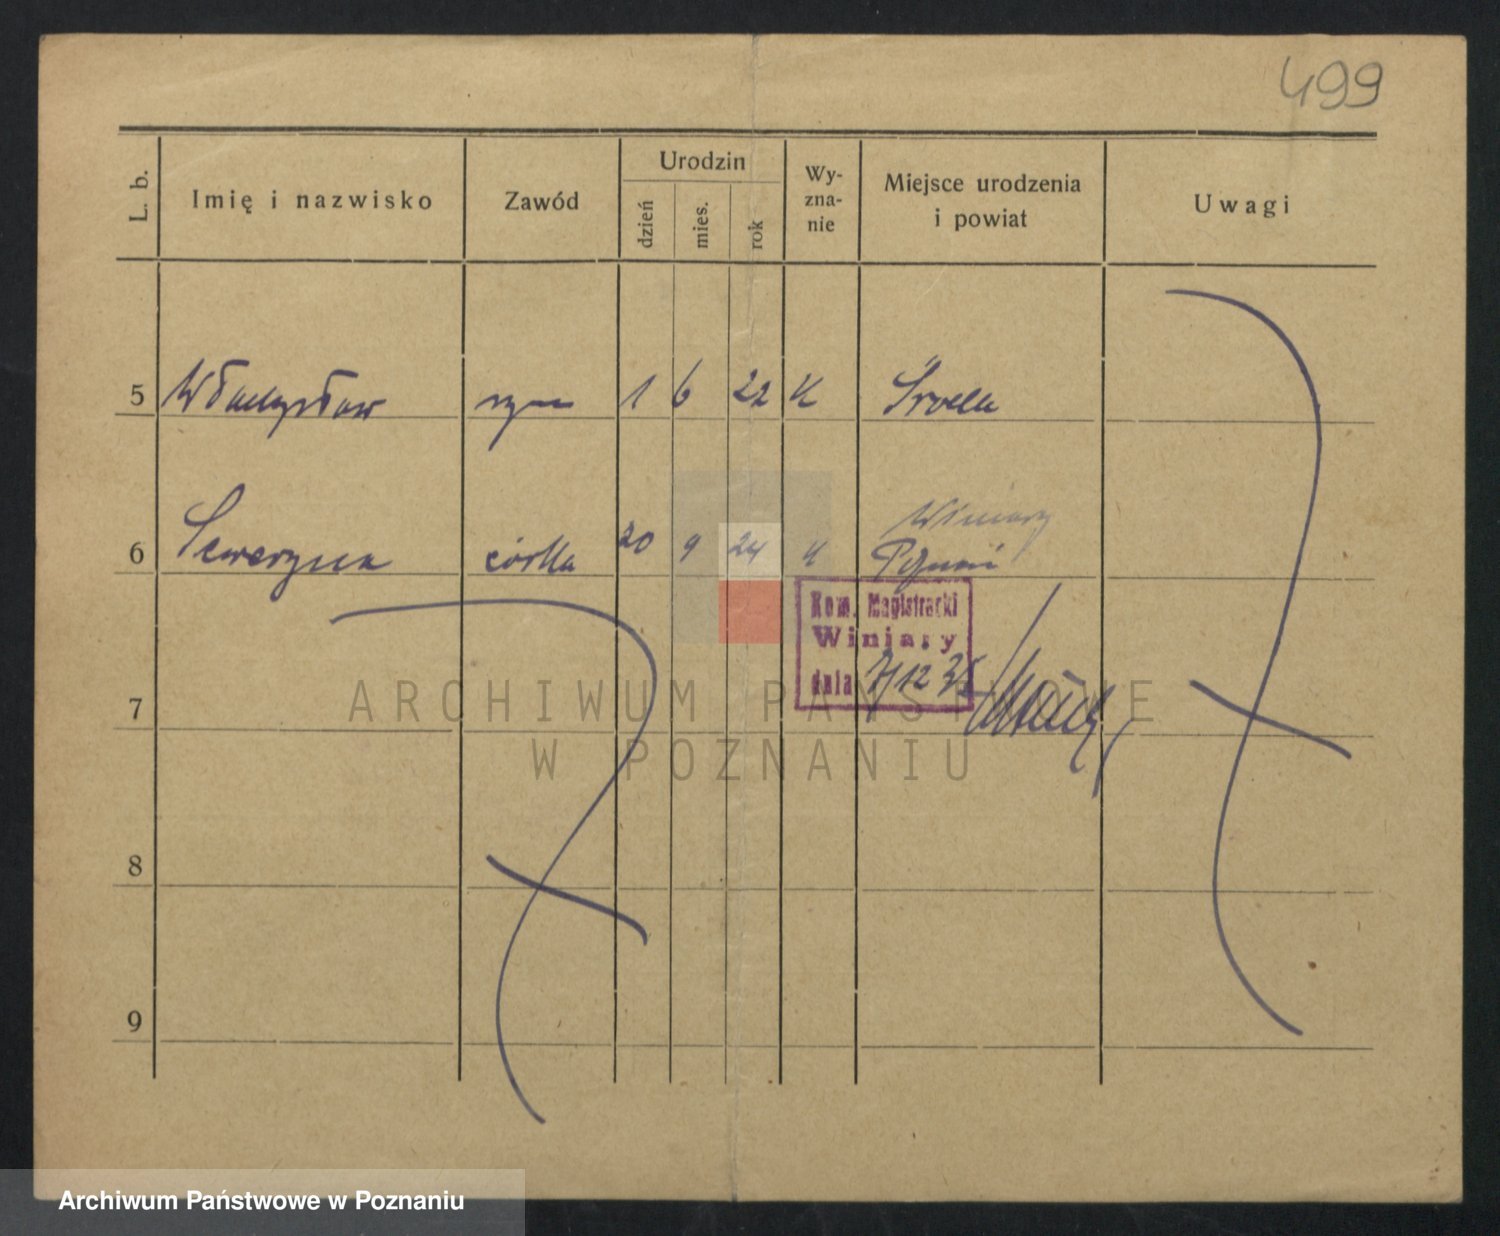 499
L. b.
Imię i nazwisko
Zawód
Urodzin
dzień
mies.
rok
Wy-
zna-
nie
Miejsce urodzenia
i powiat
Uwagi
5 Władysław syn 1 6 22 K Środa
6 Seweryna córka 20 9 24 K
Winiary
Poznań
Kom. Magistracki
Winiary
dnia 7/12 35
7
8
9
ARCHIWUM PAŃSTWOWE
W POZNANIU
Archiwum Państwowe w Poznaniu